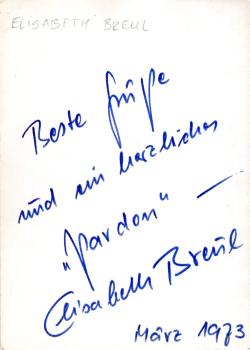 ELISABETH BREUL
Beste Grüße
und ein herzliches
„Pardon“ —
Elisabeth Breul
März 1973